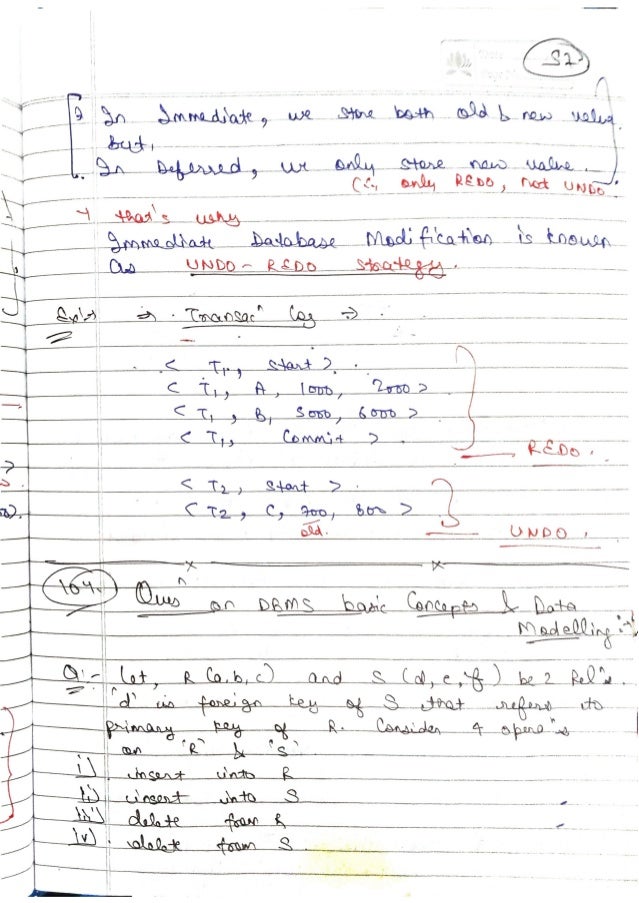 52
→ In Immediate, we store both old & new value.
but,
In Deferred, we only store new value.
(∵ only REDO, not UNDO.
→ that's why
Immediate Database Modification is known
as UNDO - REDO Strategy.
⇒ Transacⁿ log ⇒
< T1, Start >.
< T1, A, 1000, 2000 >
< T1, B, 5000, 6000 >
< T1, Commit >.
REDO.
< T2, Start >.
< T2, C, 700, 800 >
old.
UNDO.
104. Quesⁿ on DBMS basic Concepts & Data
Modelling :-
Q:- Let, R (a, b, c) and S (d, e, f) be 2 Relⁿs.
'd' is foreign key of S that refers to
primary key of R. Consider 4 opereⁿs
on 'R' & 'S'
i) insert into R
ii) insert into S
iii) delete from R
iv) delete from S